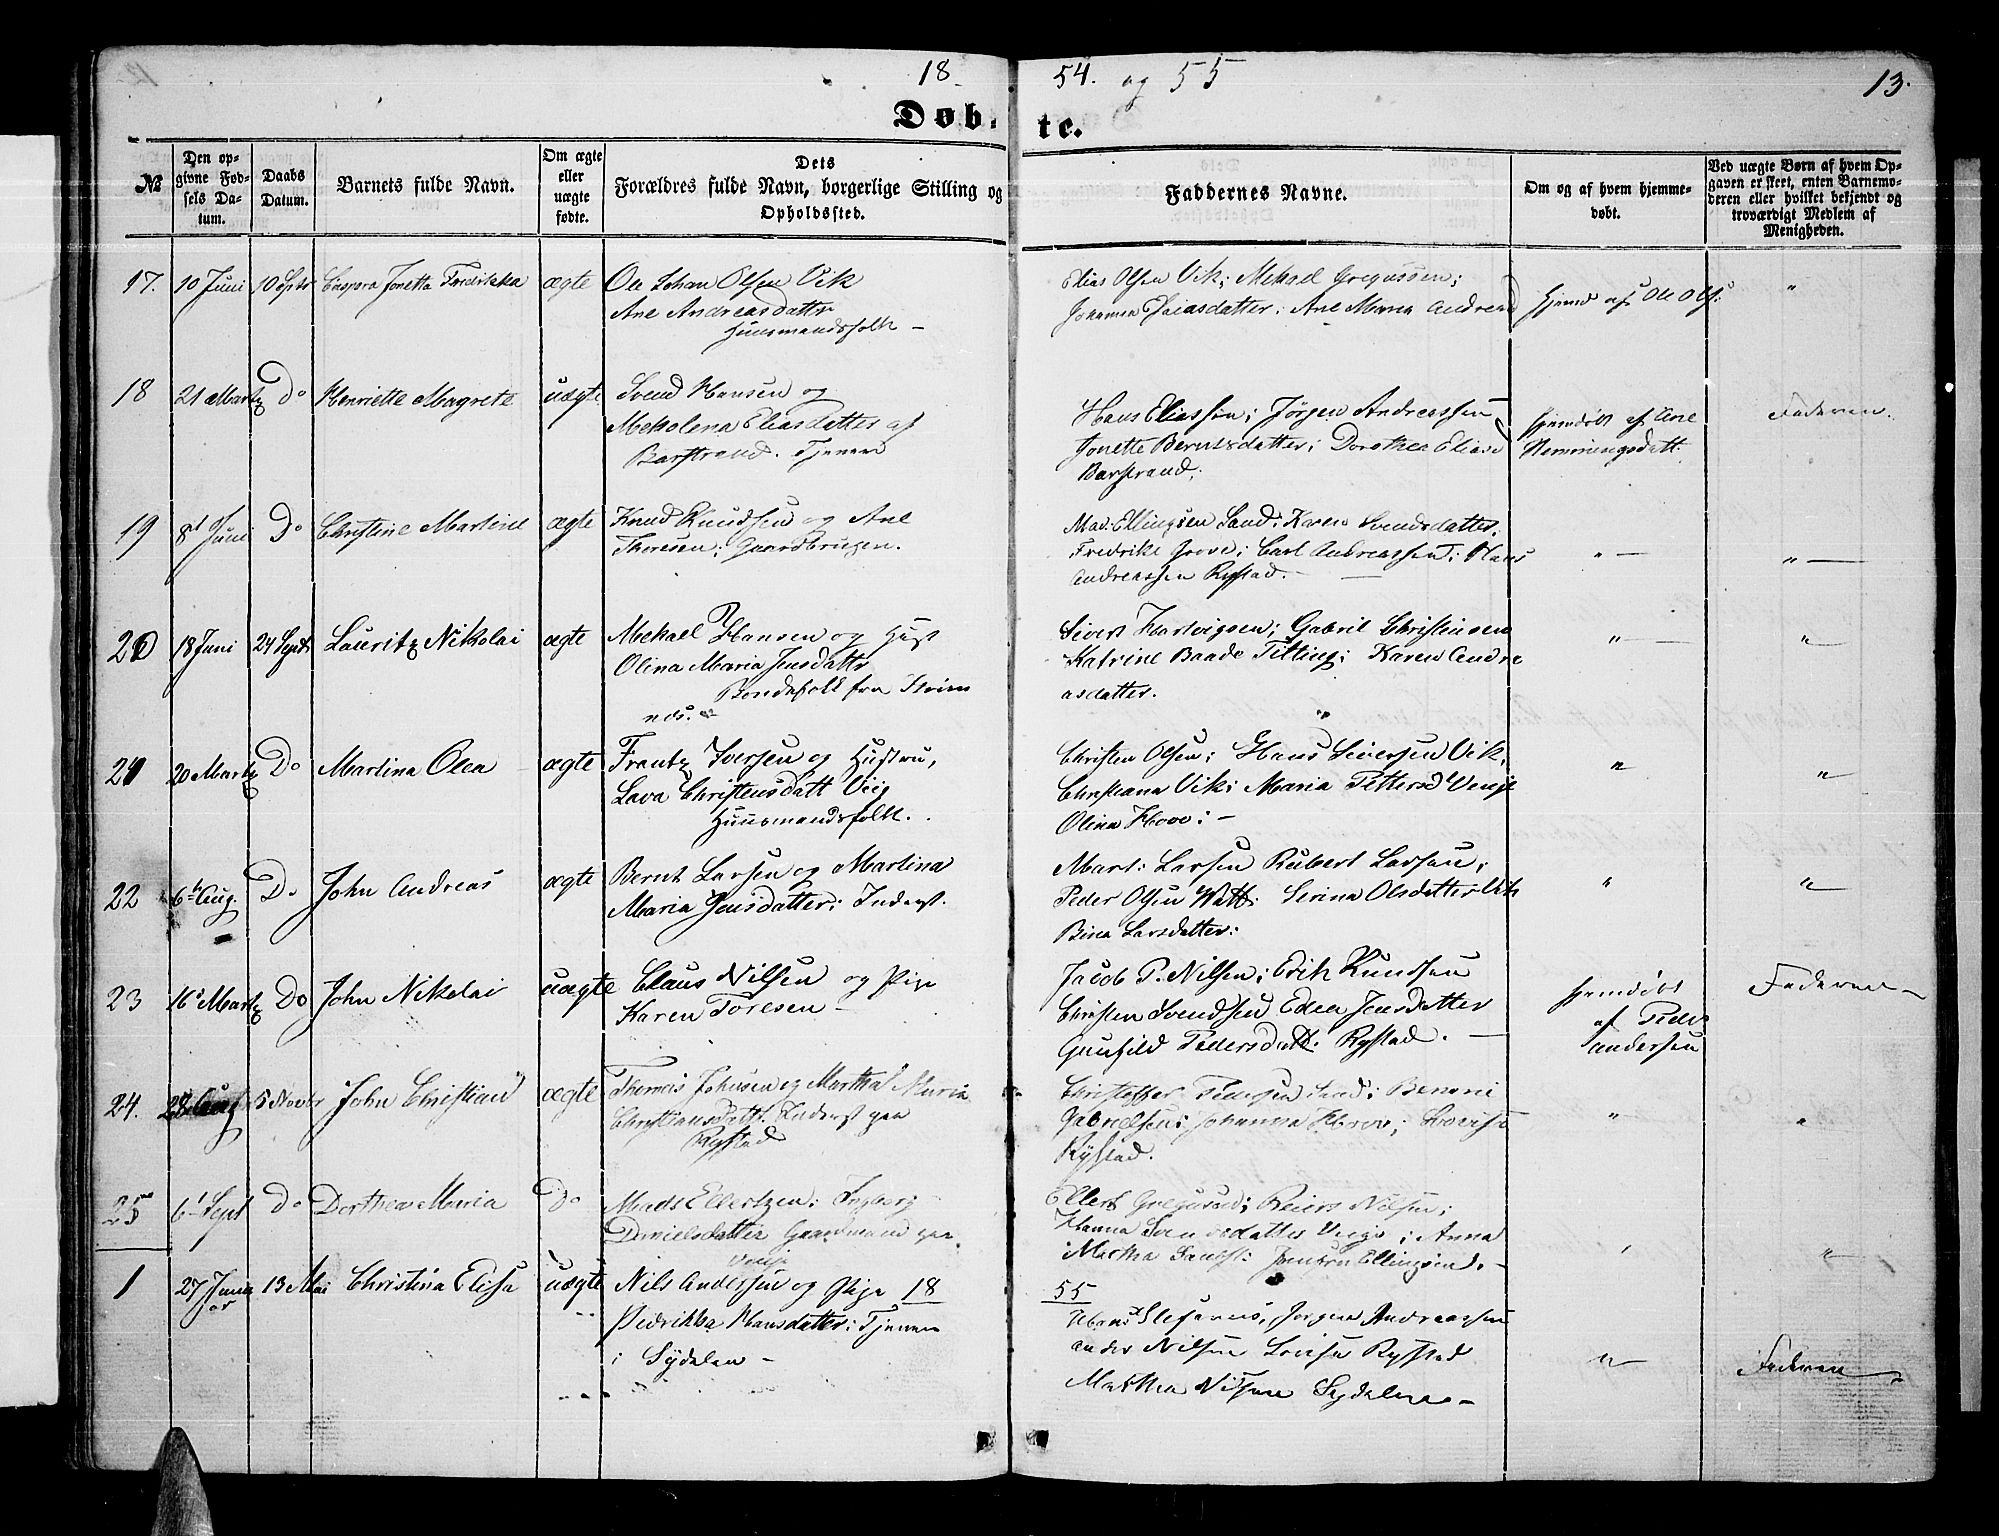 18 54. og 55
13.
Døbte.
№
Den opgivne Fødsels Datum.
Daabs Datum.
Barnets fulde Navn.
Om ægte eller uægte fødte.
Dets Forældres fulde Navn, borgerlige Stilling og Opholdssted.
Faddernes Navne.
Om og af hvem hjemmedøbt.
Ved uægte Børn af hvem Opgaven er skeet, enten Barnemoderen eller hvilket bekjendt og troværdigt Medlem af Menigheden.
17. 10 Juni 10 Septr Caspora Jonetta Fredrikka ægte Ole Johan Olsen Vik
Ane Andreasdattr
Huusmandsfolk -
Elias Olsen Vik; Mekael Gregussen;
Johanna Eliasdatter; Ane Maria Andreasd
Hjemd af Ole Ols: "
18 21 Martz Do Henriette Magrete uægte Svend Hansen og
Mekolena Eliasdatter af
Barstrand. Tjenere
Hans Eliassen; Jörgen Andreassen
Jonette Berntsdatter; Dorothea Eliasd
Barstrand;
Hjemdöbt af Ane
Hemmingsdatt:
Faderen.
19 8de Juni Do Christine Martine ægte Knud Knudsen og Ane
Thoresen; Gaardbruger.
Mad: Ellingsen Sand; Karen Svendsdatter.
Fredrike Grove; Carl Andreassen; Hans
Andreassen Rystad. -
" - " -
20 18 Juni 24 Septr Lauritz Nikolai ægte Mekael Hansen og Hust
Olina Maria Jensdattr
Bondefolk fra
Sivert Hartvigsen; Gabril Christensen
Katrine Baade Titling; Karen Andre
asdatter.
" - "
21 20 Martz Do Martina Olea ægte Frantz Iversen og Hustru,
Lava Christensdatt Viig
Huusmandsfolk.
Christen Olsen; Hans Sivertsen Vik,
Christiana Vik; Maria Pettersd Venje
Olina Hove; -
" "
22 6te Aug. Do John Andreas ægte Bernt Larsen og Martina
Maria Jensdatter; Inderst.
Mart: Larsen Rubert Larsen;
Peder Olsen Watt; Serina Olsdatter
Bina Larsdatter:
" "
23 16de Martz Do John Nikolai uægte Claus Nilsen og Pige
Karen Toresen -
Jacob P. Nilsen; Erik Knudsen
Christen Svendsen Edea Jensdatter
Gunhild Pedersdatt. Rystad. -
Hjemdöbt
af Peder
Andersen
Faderen -
24. 28 Aug 5 Novbr John Christian ægte Thomas Johnsen og Martha Maria
Christiansdatt. Inderst paa
Rystad
Christoffer Pedersen Sand; Benoni
Gabrielsen; Johanna Hove; Lovisa
Rystad.
" "
25 6te Sept Do Dorthea Maria Do Mads Ellertsen; Ingborg
Danielsdatter Gaardmand paa
Venje
Ellert Gregused; Reiers Nilsen;
Hanna Svendsdatter Venje; Anna
Martha Sand; Jomfru Ellingsen. -
"
1 27 Janu
ar 13 Mai Christina Elisa uægte Nils Andersen og Pige 18
Fredrikka Hansdatter: Tjenere
i Sydalen -
55
Hans Stefanus, Jorgen Andreassen
Ander Nilsen Lovisa Rystad
Martha Nilsen Sydalen -
" - Faderen